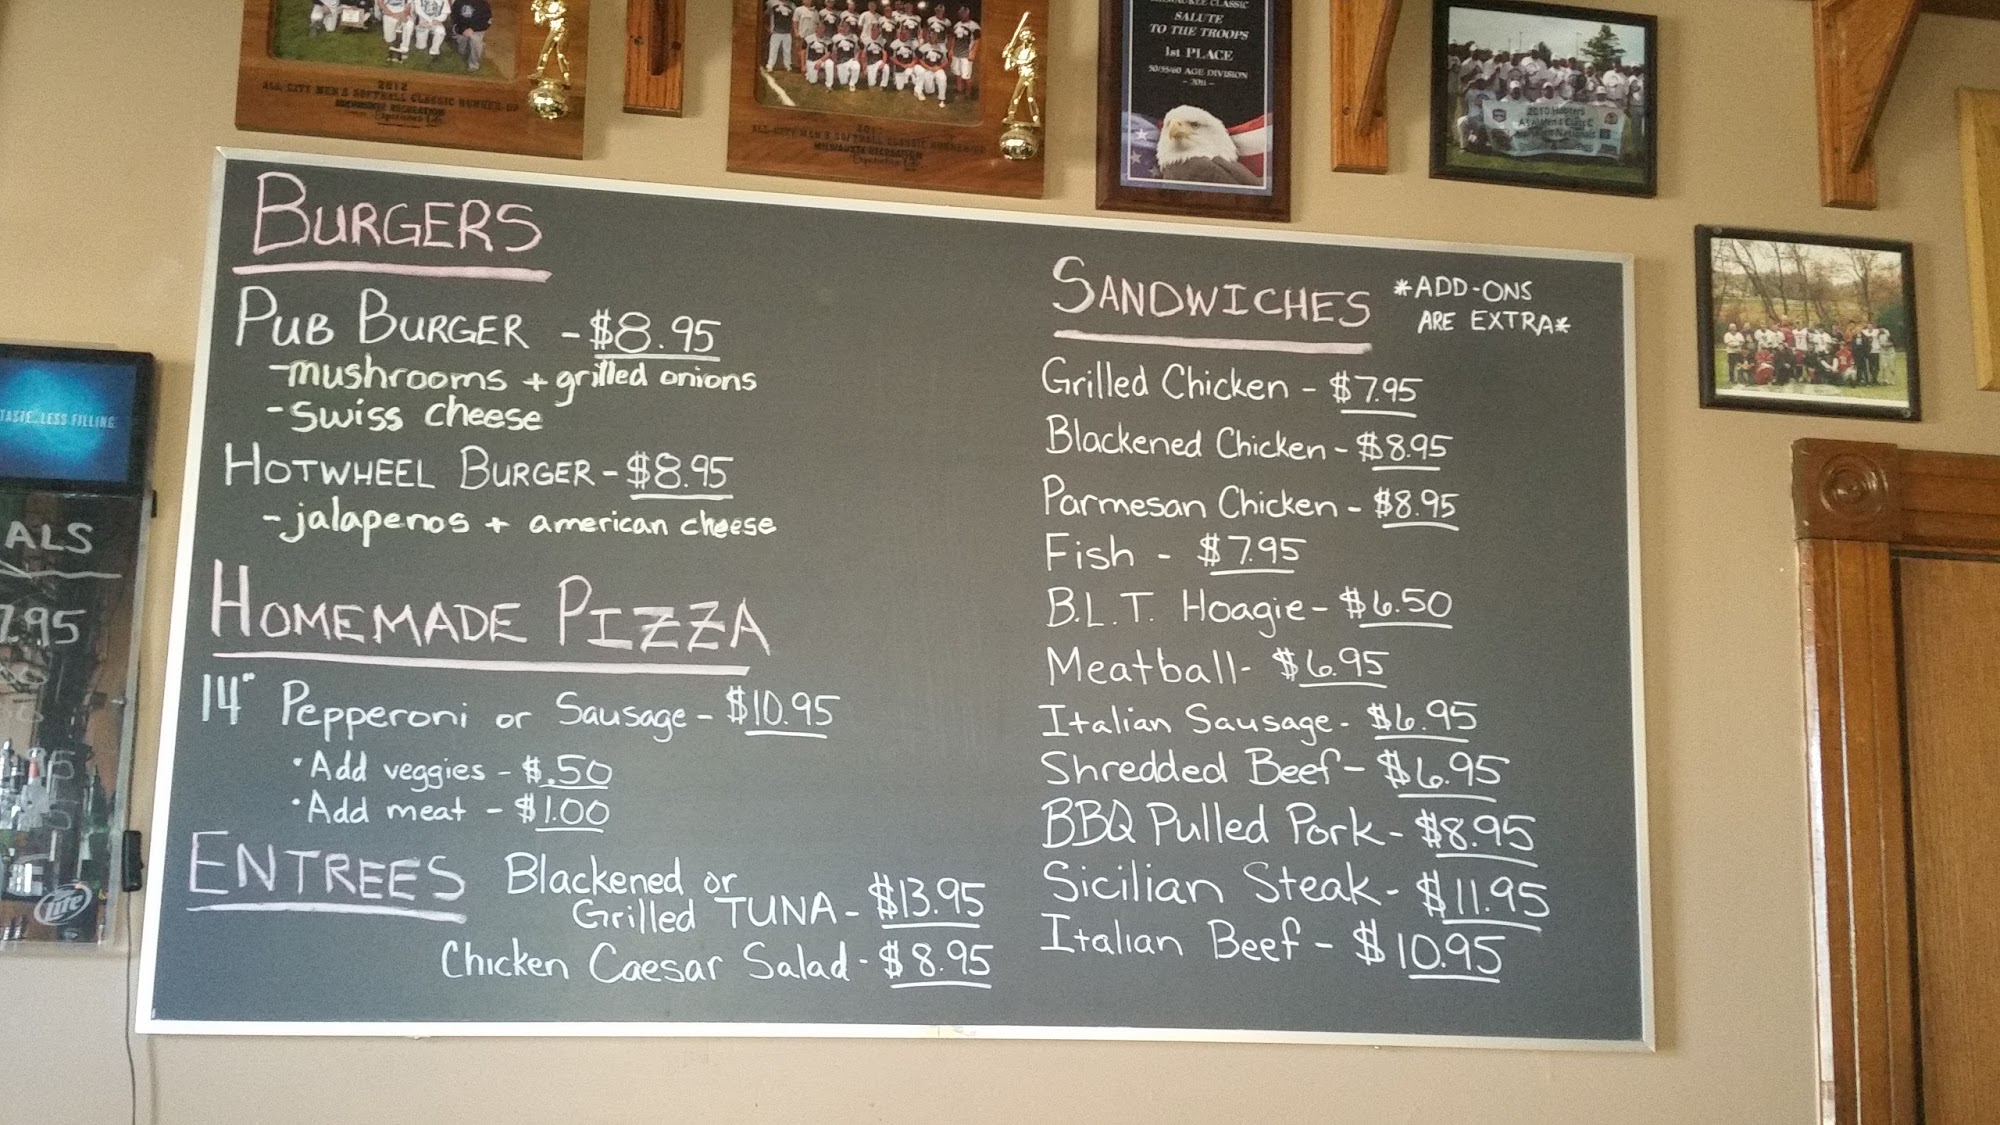 2012
ALL CITY MEN'S SOFTBALL CLASSIC RUNNER UP
MILWAUKEE RECREATION
ALL-CITY MEN'S SOFTBALL CLASSIC RUNNER-UP
MILWAUKEE RECREATION
MILWAUKEE CLASSIC
SALUTE
TO THE TROOPS
1st PLACE
50/55/60 AGE DIVISION
- 2011 -
TASTE. LESS FILLING.
ALS
7.95
Lite
BURGERS
PUB BURGER - $8.95
- mushrooms + grilled onions
- swiss cheese
HOTWHEEL BURGER - $8.95
- jalapenos + american cheese
HOMEMADE PIZZA
14" Pepperoni or Sausage - $10.95
• Add veggies - $.50
• Add meat - $1.00
ENTREES
Blackened or
Grilled TUNA - $13.95
Chicken Caesar Salad - $8.95
SANDWICHES
*ADD-ONS
ARE EXTRA*
Grilled Chicken - $7.95
Blackened Chicken - $8.95
Parmesan Chicken - $8.95
Fish - $7.95
B.L.T. Hoagie - $6.50
Meatball - $6.95
Italian Sausage - $6.95
Shredded Beef - $6.95
BBQ Pulled Pork - $8.95
Sicilian Steak - $11.95
Italian Beef - $10.95